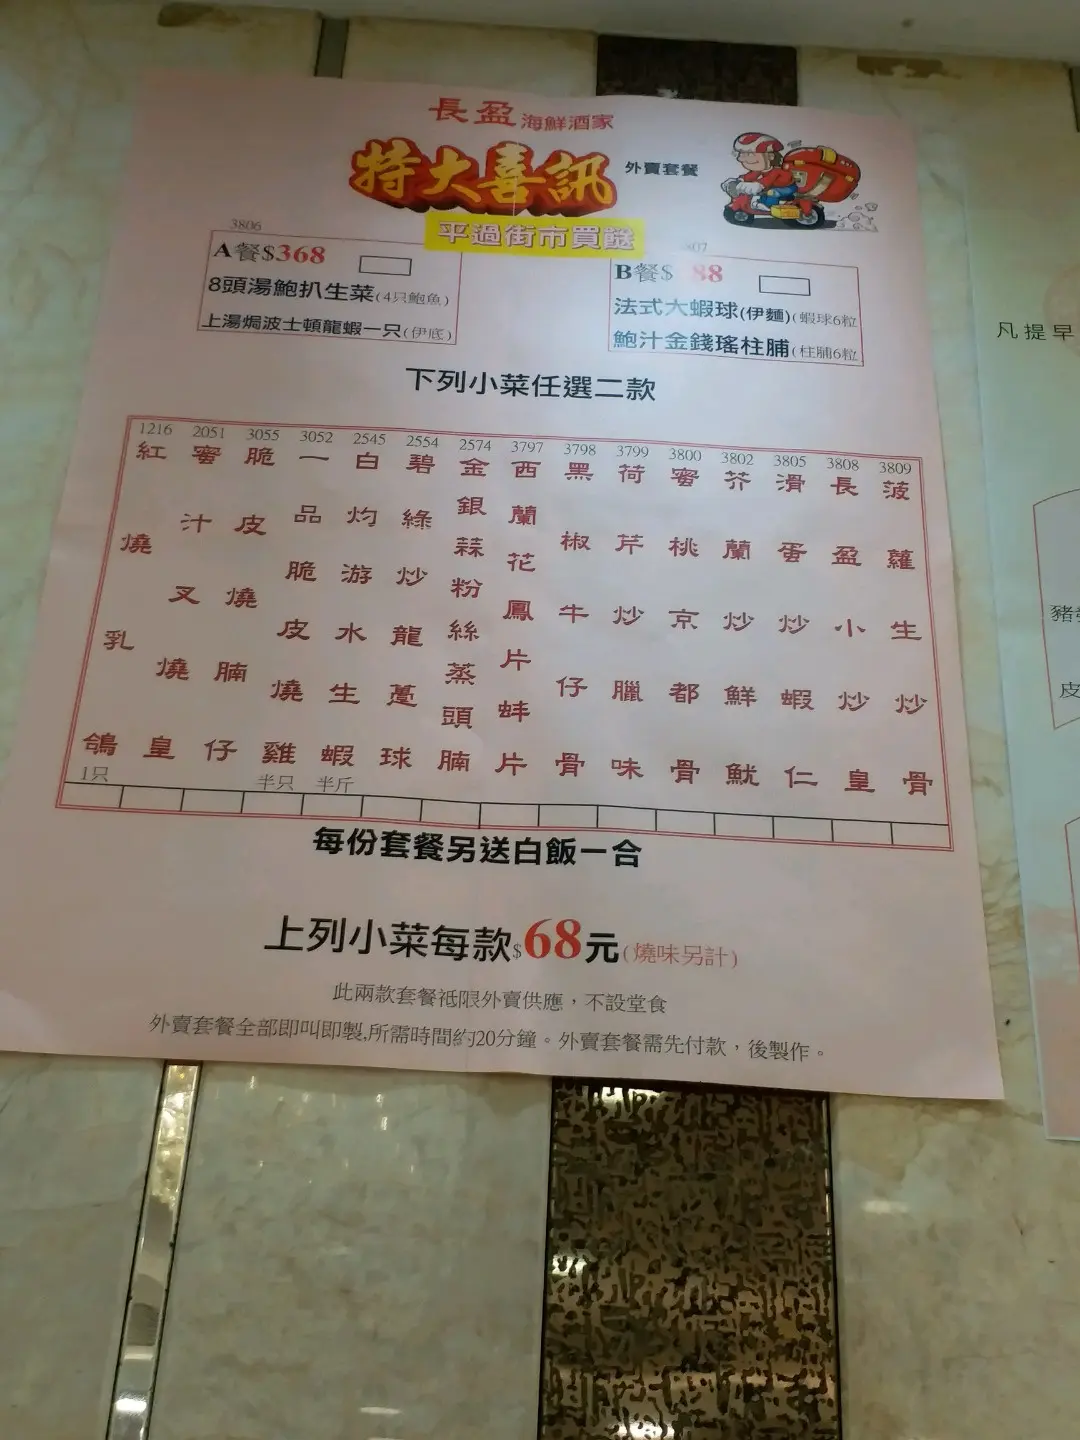 長盈海鮮酒家
特大喜訊
外賣套餐
平過街市買餸
3806
A餐$368
8頭湯鮑扒生菜(4只鮑魚)
上湯焗波士頓龍蝦一只(伊底)
B餐$
法式大蝦球(伊麵)(蝦球6粒
鮑汁金錢瑤柱脯(柱脯6粒
下列小菜任選二款
1216 紅燒乳鴿 1只
2051 蜜汁叉燒皇
3055 脆皮燒腩仔
3052 一品脆皮燒雞 半只
2545 白灼游水生蝦 半斤
2554 碧綠炒龍躉球
2574 金銀蒜粉絲蒸頭腩
3797 西蘭花鳳片蚌片
3798 黑椒牛仔骨
3799 荷芹炒臘味
3800 蜜桃京都骨
3802 芥蘭炒鮮魷
3805 滑蛋炒蝦仁
3808 長盈小炒皇
3809 菠蘿生炒骨
每份套餐另送白飯一合
上列小菜每款$68元(燒味另計)
此兩款套餐祗限外賣供應，不設堂食
外賣套餐全部即叫即製,所需時間約20分鐘。外賣套餐需先付款，後製作。
凡提早
皮